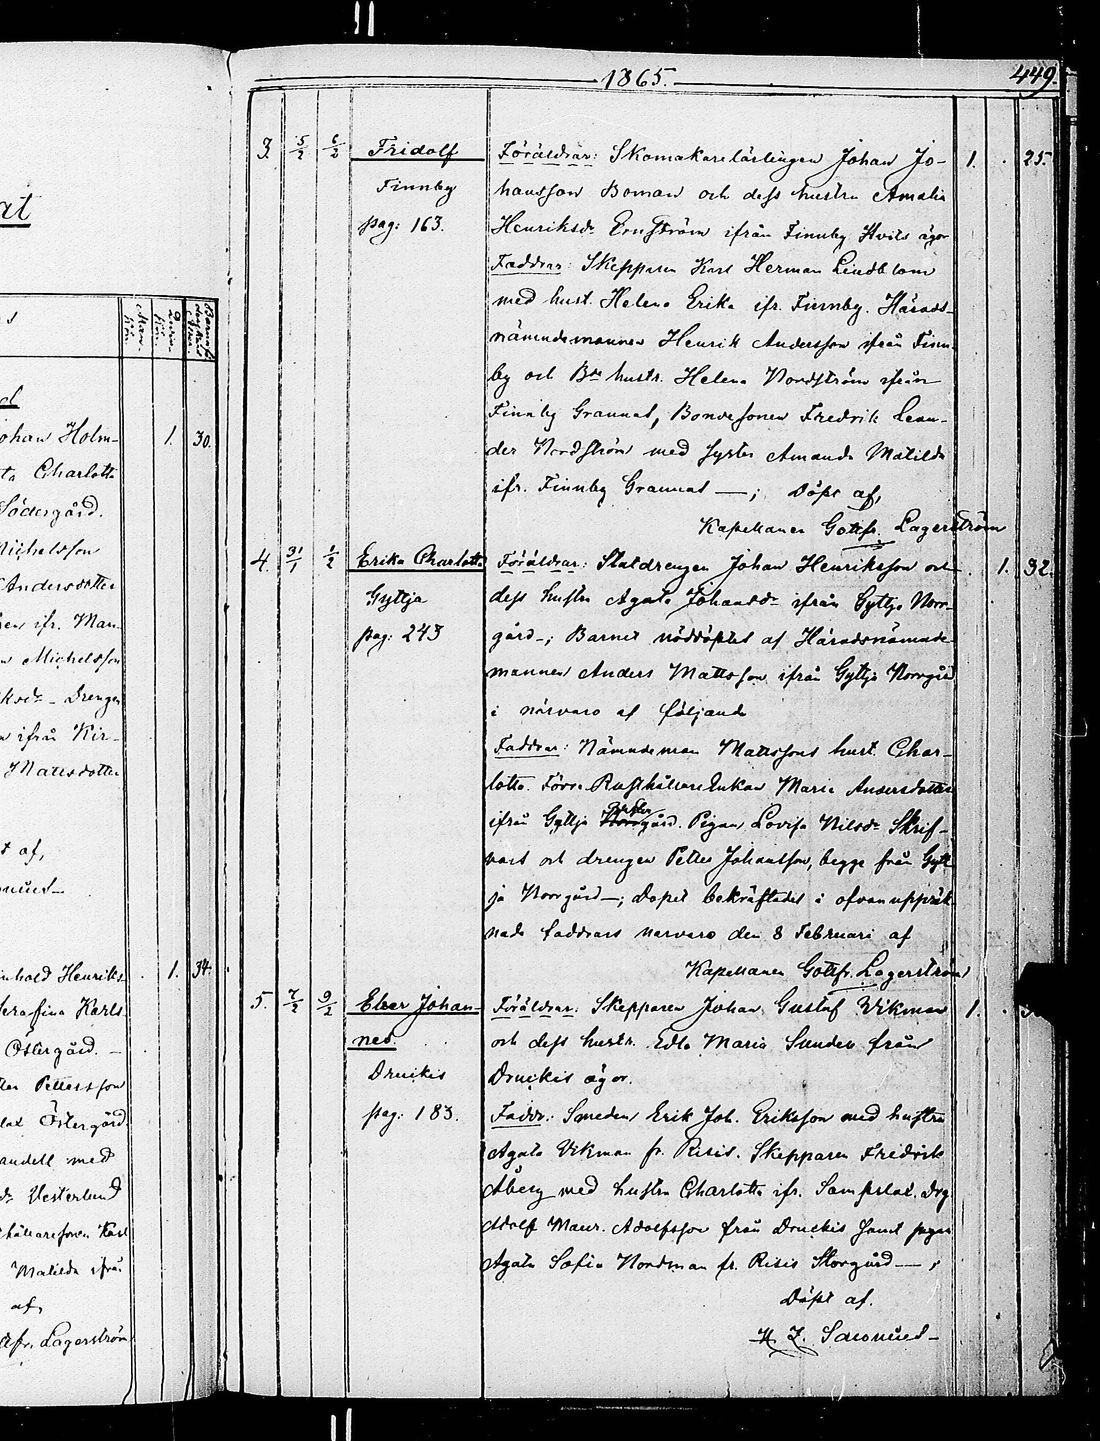 at
s
Barnaf
Qvin-
kön.
Man-
kön.
d
ohan Holm- 1. 30.
ta Charlotte
Södergård.
Michelsson
Andersdotter
ifr. Man
Michelsson
ksdr - Drengen
ifrån Kir-
Mattsdotter
t af,
inhold Henriks- 1. 34.
erafina Karls
Östergård. —
ter Pettersson
lax Östergård
andell med
dr Vesterlund
hållaresonen Karl
Matilda ifrån
af,
tfr. Lagerström
1865. 449.
3. 5/2 6/2 Fridolf Föräldrar: Skomakarelärlingen Johan Jo- 1. . 25.
Finnby hansson Boman och dess hustru Amalia
pag: 163. Henriksdr Engström ifrån Finnby Hvits ägor
Faddrar: Skepparen Karl Herman Lindblom
med hust. Helena Erika ifr. Finnby. Härads-
nämndemannen Henrik Andersson ifrån Finn-
by och Bde hustr. Helena Nordström ifrån
Finnby Grannas, Bondesonen Fredrik Lean-
der Nordström med syster Amanda Matilda
ifr. Finnby Grannas —; Döpt af,
Kapellanen Gottfr. Lagerström
4. 31/1 1/2 Erika Charlotta Föräldrar: Staldrengen Johan Henriksson och . 1. 32.
Gyltja dess hustru Agata Johansdr ifrån Gyltja Norr-
pag: 243 gård—; Barnet nöddöptes af Häradsnämnde-
mannen Anders Mattsson ifrån Gyltja Norrgård
i närvaro af följande
Faddrar: Nämndeman Mattssons hust. Char-
lotta. Förra Rusthållare Enkan Maria Andersdotter
ifrån Gyltja gård. Pigan Lovisa Nilsdr Skrif-
vars och drengen Petter Johansson, begge från Gylt
ja Norrgård—; Dopet bekräftades i ofvanuppräk
nade faddrars närvaro den 8 Februari af
Kapellanen Gottfr. Lagerström
5. 7/2 9/2 Elver Johan- Föräldrar: Skepparen Johan Gustaf Vikman 1. .
nes. och dess hustr. Edla Maria Sundén från
Druckis Druckis ägor.
pag: 183. Faddr: Smeden Erik Joh. Eriksson med hustru
Agata Vikman fr. Risis. Skepparen Fredrik
Åberg med hustru Charlotta ifr. Sampslax. Drg
Adolf Maur. Adolfsson från Druckis samt pigan
Agata Sofia Nordman fr. Risis Storgård—;
Döpt af.